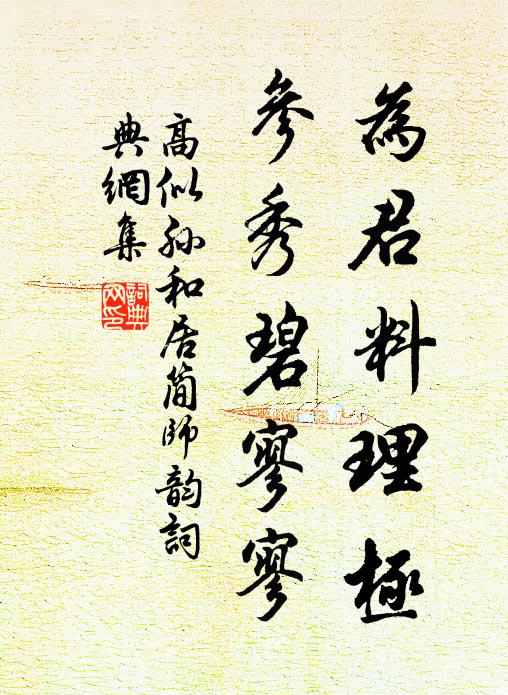 為君料理極
參秀碧寥寥
高似孫和居簡師韵詞
典網集
詞典網印